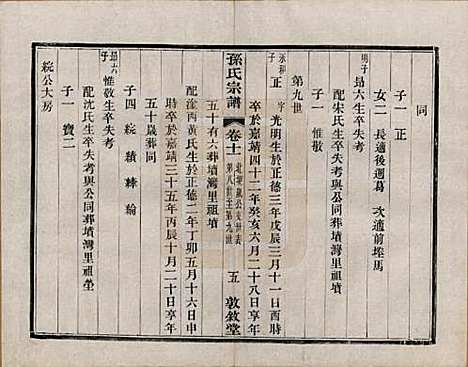 同
子一 正
女二 長適後週葛 次適前埄馬
昂六生卒失考
配宋氏生卒失考與公同葬墳灣里祖塋
子一 惟敬
第九世
正 字 光明生於正德三年戊辰三月十一日酉時
卒於嘉靖四十二年癸亥六月二十八日享年
孫氏宗譜
卷十一
第八世至第九世
五
敦敘堂
五十有六葬墳灣里祖墳
配淦西黃氏生於正德二年丁卯五月十六日申
時卒於嘉靖三十五年丙辰十月二十日享年
五十歲葬同
子四 綂 績 綝 綸
昂六子
惟敬生卒失考
配沈氏生卒失考與公同葬墳灣里祖塋
子一 寶二
綂公大房